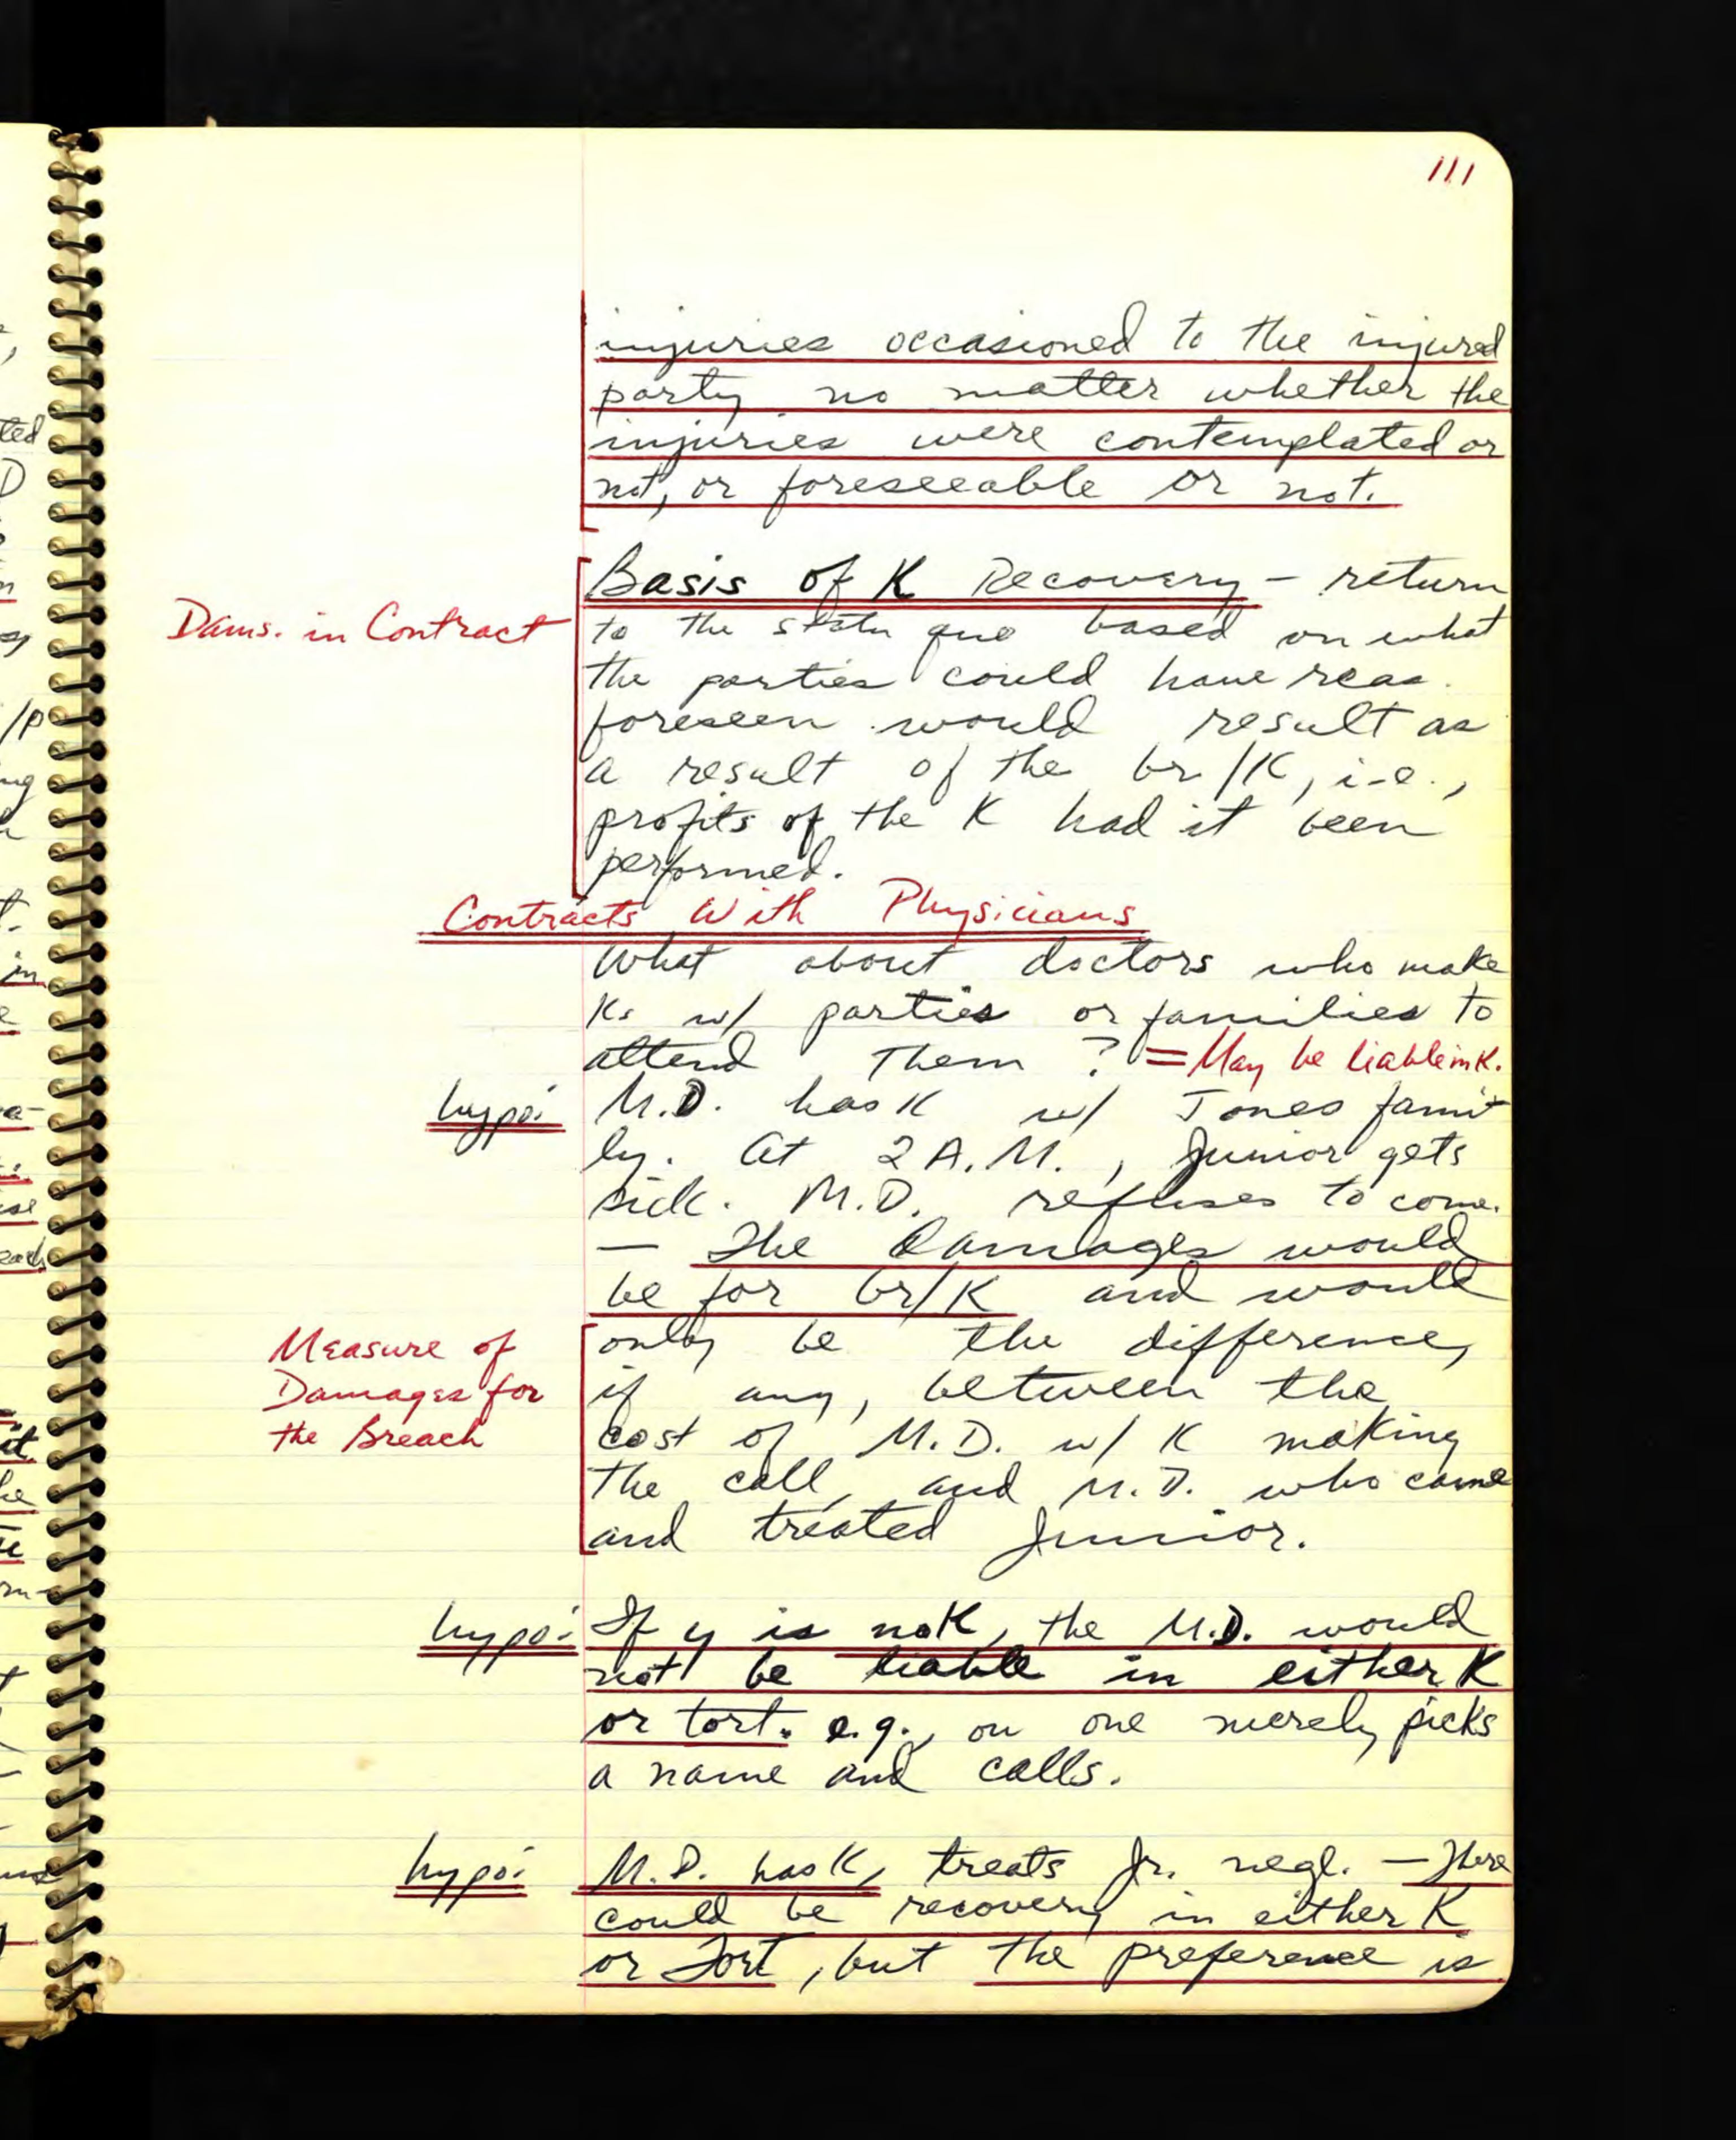 111
injuries occasioned to the injured
party no matter whether the
injuries were contemplated or
not, or foreseeable or not.
Basis of K Recovery - return
Dams. in Contract
to the statu quo based on what
the parties could have reas.
foreseen would result as
a result of the br/K, i.e.,
profits of the K had it been
performed.
Contracts With Physicians
What about doctors who make
Ks w/ parties or families to
attend them? = May be liable in K.
hypo: M.D. has K w/ Jones fami-
ly. At 2 A.M., Junior gets
sick. M.D. refuses to come.
— The Damages would
be for br/K and would
Measure of
Damages for
the Breach
only be the difference,
if any, between the
cost of M.D. w/ K making
the call, and M.D. who came
and treated Junior.
hypo: If is no K, the M.D. would
not be liable in either K
or tort. e.g., one merely picks
a name and calls.
hypo: M.D. has K, treats Jr. negl. — There
could be recovery in either K
or Tort, but the preference is